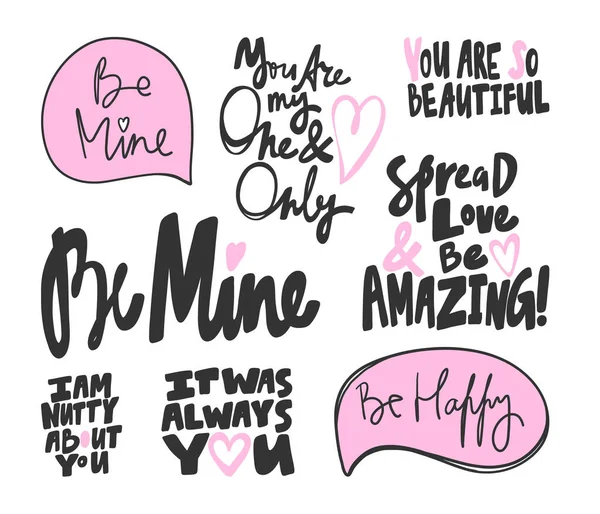 Be
Mine
You Are
my
One &
Only
YOU ARE SO
BEAUTIFUL
SpreaD
Love
& Be
AMAZING!
Be Mine
I AM
NUTTY
ABOUT
YOU
IT WAS
ALWAYS
YOU
Be Happy